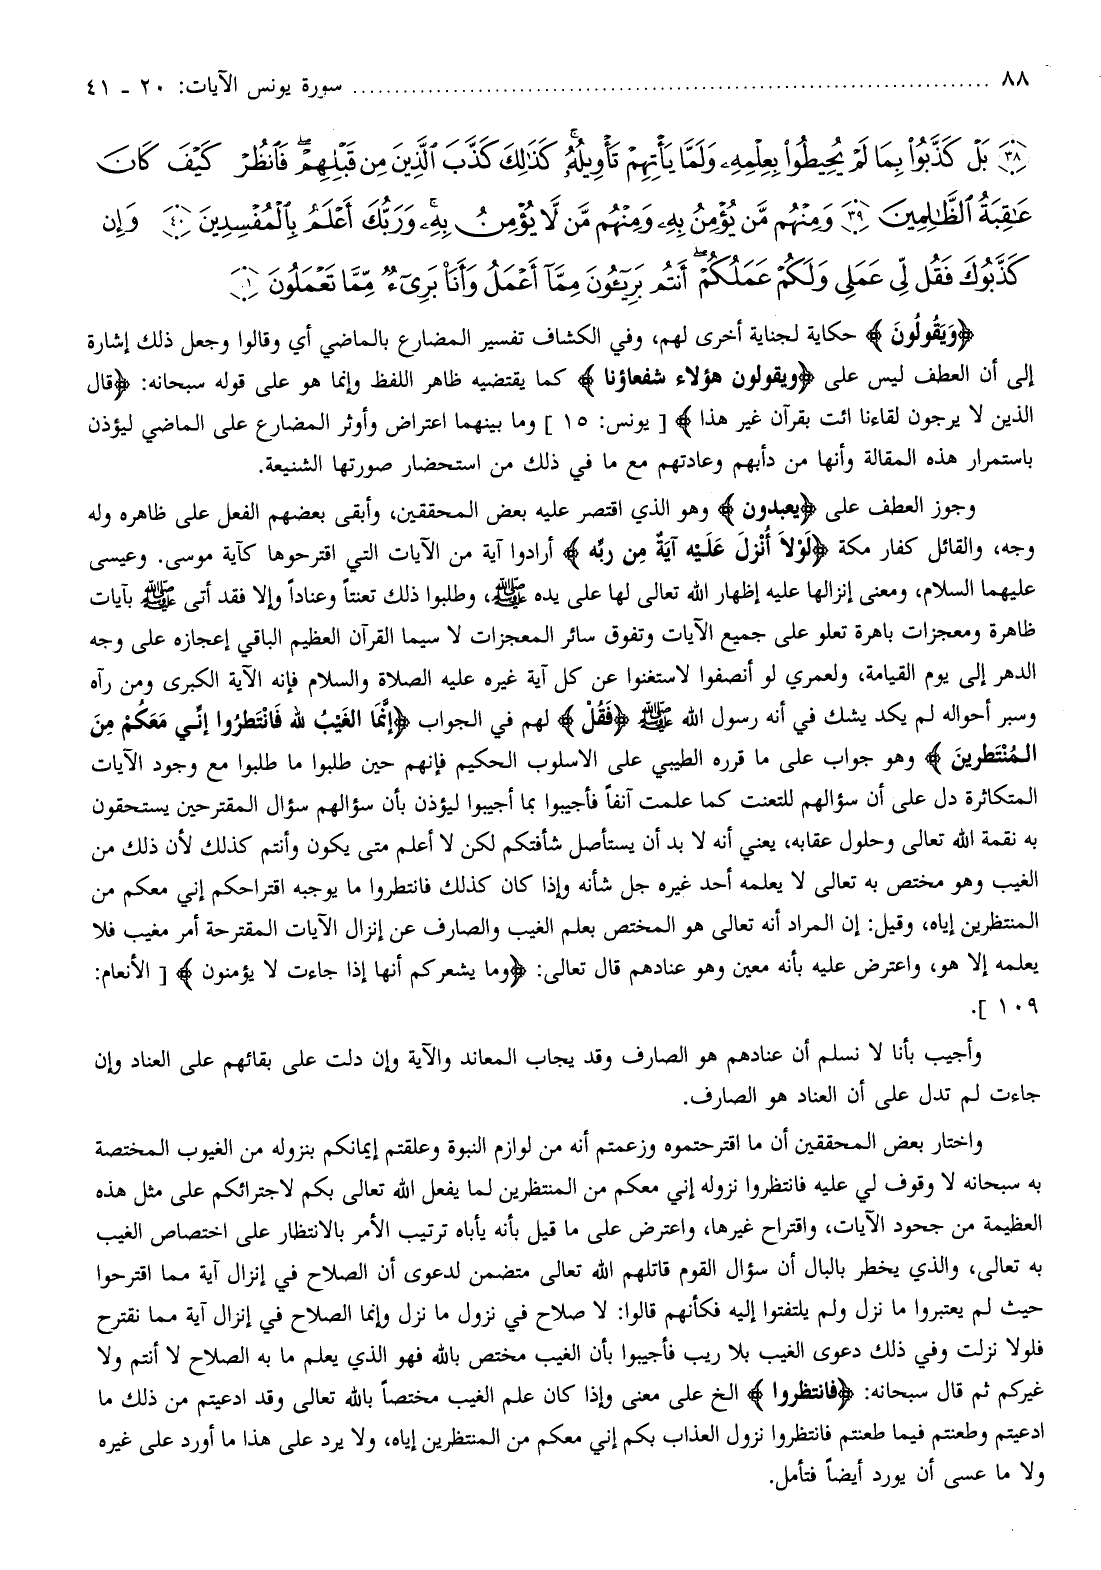 ٨٨ ........ سورة يونس الآيات: ٢٠ ـ ٤١
٣٨ بَلْ كَذَّبُوا۟ بِمَا لَمْ يُحِيطُوا۟ بِعِلْمِهِۦ وَلَمَّا يَأْتِهِمْ تَأْوِيلُهُۥ ۚ كَذَٰلِكَ كَذَّبَ ٱلَّذِينَ مِن قَبْلِهِمْ ۖ فَٱنظُرْ كَيْفَ كَانَ
عَٰقِبَةُ ٱلظَّٰلِمِينَ ٣٩ وَمِنْهُم مَّن يُؤْمِنُ بِهِۦ وَمِنْهُم مَّن لَّا يُؤْمِنُ بِهِۦ ۚ وَرَبُّكَ أَعْلَمُ بِٱلْمُفْسِدِينَ ٤٠ وَإِن
كَذَّبُوكَ فَقُل لِّى عَمَلِى وَلَكُمْ عَمَلُكُمْ ۖ أَنتُم بَرِيٓـُٔونَ مِمَّآ أَعْمَلُ وَأَنَا۠ بَرِىٓءٌ مِّمَّا تَعْمَلُونَ ١
﴿وَيَقُولُونَ﴾ حكاية لجناية أخرى لهم، وفي الكشاف تفسير المضارع بالماضي أي وقالوا وجعل ذلك إشارة
إلى أن العطف ليس على ﴿ويقولون هؤلاء شفعاؤنا﴾ كما يقتضيه ظاهر اللفظ وإنما هو على قوله سبحانه: ﴿قال
الذين لا يرجون لقاءنا ائت بقرآن غير هذا﴾ [ يونس: ١٥ ] وما بينهما اعتراض وأوثر المضارع على الماضي ليؤذن
باستمرار هذه المقالة وأنها من دأبهم وعادتهم مع ما في ذلك من استحضار صورتها الشنيعة.
وجوز العطف على ﴿يعبدون﴾ وهو الذي اقتصر عليه بعض المحققين، وأبقى بعضهم الفعل على ظاهره وله
وجه، والقائل كفار مكة ﴿لَوْلاَ أُنْزِلَ عَلَيْه آيَةٌ مِن ربِّه﴾ أرادوا آية من الآيات التي اقترحوها كآية موسى. وعيسى
عليهما السلام، ومعنى إنزالها عليه إظهار الله تعالى لها على يده ﷺ، وطلبوا ذلك تعنتاً وعناداً وإلا فقد أتى ﷺ بآيات
ظاهرة ومعجزات باهرة تعلو على جميع الآيات وتفوق سائر المعجزات لا سيما القرآن العظيم الباقي إعجازه على وجه
الدهر إلى يوم القيامة، ولعمري لو أنصفوا لاستغنوا عن كل آية غيره عليه الصلاة والسلام فإنه الآية الكبرى ومن رآه
وسبر أحواله لم يكد يشك في أنه رسول الله ﷺ ﴿فَقُلْ﴾ لهم في الجواب ﴿إنَّمَا الغَيْبُ لله فَانْتَطرُوا إنِّي مَعَكُمْ مِنَ
المُنْتَطرينَ﴾ وهو جواب على ما قرره الطيبي على الاسلوب الحكيم فإنهم حين طلبوا ما طلبوا مع وجود الآيات
المتكاثرة دل على أن سؤالهم للتعنت كما علمت آنفاً فأجيبوا بما أجيبوا ليؤذن بأن سؤالهم سؤال المقترحين يستحقون
به نقمة الله تعالى وحلول عقابه، يعني أنه لا بد أن يستأصل شأفتكم لكن لا أعلم متى يكون وأنتم كذلك لأن ذلك من
الغيب وهو مختص به تعالى لا يعلمه أحد غيره جل شأنه وإذا كان كذلك فانتطروا ما يوجبه اقتراحكم إني معكم من
المنتظرين إياه، وقيل: إن المراد أنه تعالى هو المختص بعلم الغيب والصارف عن إنزال الآيات المقترحة أمر مغيب فلا
يعلمه إلا هو، واعترض عليه بأنه معين وهو عنادهم قال تعالى: ﴿وما يشعركم أنها إذا جاءت لا يؤمنون﴾ [ الأنعام:
١٠٩ ].
وأجيب بأنا لا نسلم أن عنادهم هو الصارف وقد يجاب المعاند والآية وإن دلت على بقائهم على العناد وإن
جاءت لم تدل على أن العناد هو الصارف.
واختار بعض المحققين أن ما اقترحتموه وزعمتم أنه من لوازم النبوة وعلقتم إيمانكم بنزوله من الغيوب المختصة
به سبحانه لا وقوف لي عليه فانتظروا نزوله إني معكم من المنتظرين لما يفعل الله تعالى بكم لاجترائكم على مثل هذه
العظيمة من جحود الآيات، واقتراح غيرها، واعترض على ما قيل بأنه يأباه ترتيب الأمر بالانتظار على اختصاص الغيب
به تعالى، والذي يخطر بالبال أن سؤال القوم قاتلهم الله تعالى متضمن لدعوى أن الصلاح في إنزال آية مما اقترحوا
حيث لم يعتبروا ما نزل ولم يلتفتوا إليه فكأنهم قالوا: لا صلاح في نزول ما نزل وإنما الصلاح في إنزال آية مما نقترح
فلولا نزلت وفي ذلك دعوى الغيب بلا ريب فأجيبوا بأن الغيب مختص بالله فهو الذي يعلم ما به الصلاح لا أنتم ولا
غيركم ثم قال سبحانه: ﴿فانتظروا﴾ الخ على معنى وإذا كان علم الغيب مختصاً بالله تعالى وقد ادعيتم من ذلك ما
ادعيتم وطعنتم فيما طعنتم فانتظروا نزول العذاب بكم إني معكم من المنتظرين إياه، ولا يرد على هذا ما أورد على غيره
ولا ما عسى أن يورد أيضاً فتأمل.